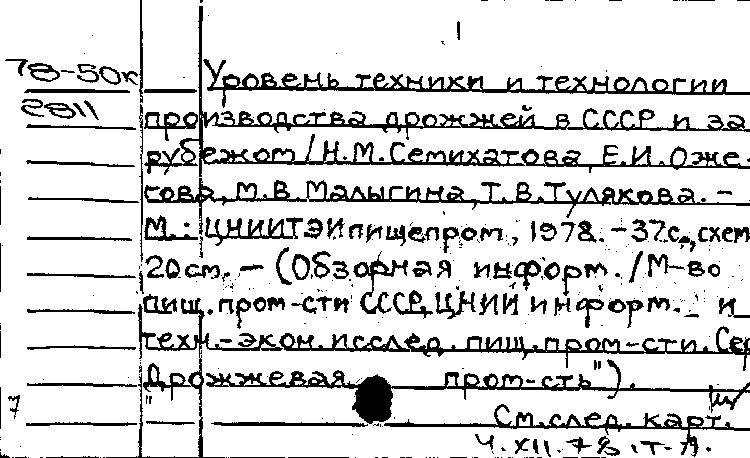 1
78-50к Уровень техники и технологии
2811 производства дрожжей в СССР и за
рубежом / Н.М.Семихатова, Е.И.Оже-
гова, М.В.Малыгина, Т.В.Тулякова. –
М.: ЦНИИТЭИпищепром, 1978. – 37с., схем
20см. – (Обзорная информ. / М-во
пищ. пром-сти СССР, ЦНИИ информ. и
техн.-экон. исслед. пищ. пром-сти. Сер
"Дрожжевая пром-сть").
7 См. след. карт.
4.XII.78 .т.А.